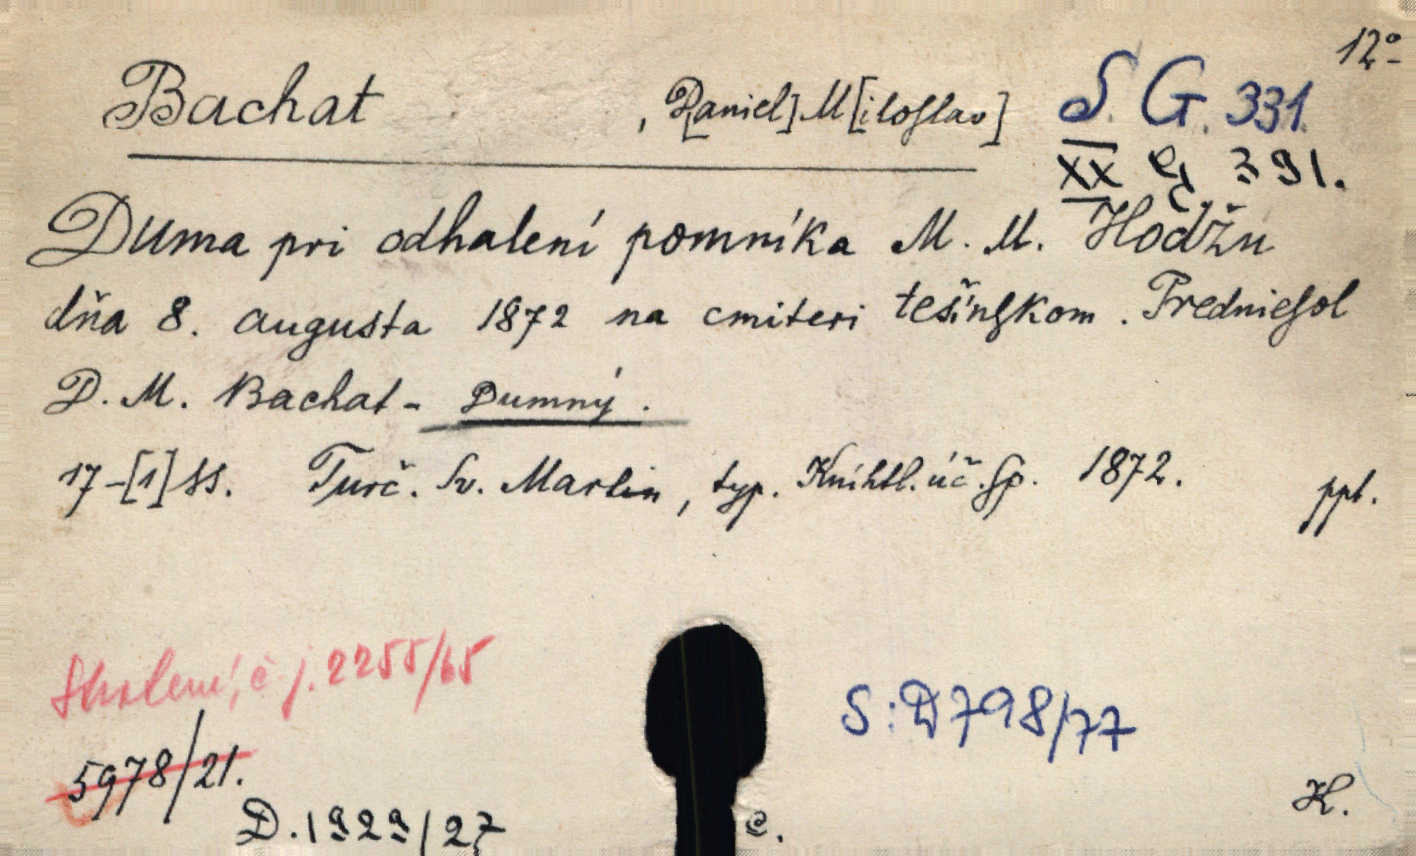 12°
Bachat , D[aniel] M[iloslav] S. G. 331.
XX G 391.
Duma pri odhalení pomníka M. M. Hodžu
dňa 8. augusta 1872 na cmiteri tešínskom. Predniesol
D. M. Bachat - Dumný.
17-[1] ss. Turč. Sv. Martin, typ. Kníhtl. úč. sp. 1872. ppt.
č. j. 2255/65
S: D 798/77
5978/21.
H.
D. 1929/27 e.